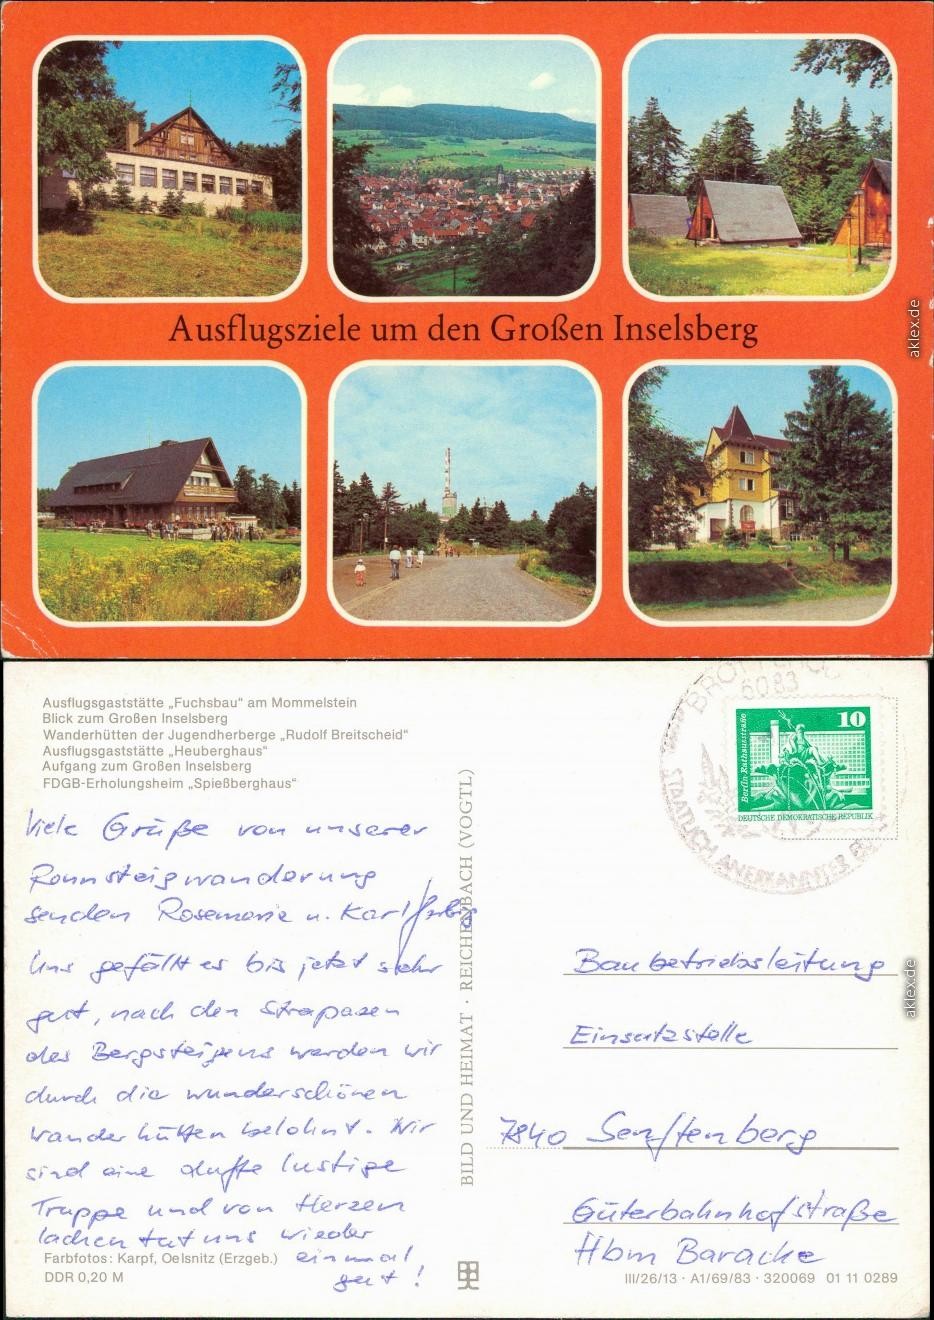 Ausflugsziele um den Großen Inselsberg
aklex.de
Ausflugsgaststätte „Fuchsbau“ am Mommelstein
Blick zum Großen Inselsberg
Wanderhütten der Jugendherberge „Rudolf Breitscheid“
Ausflugsgaststätte „Heuberghaus“
Aufgang zum Großen Inselsberg
FDGB-Erholungsheim „Spießberghaus“
Viele Grüße von unserer
Rennsteigwanderung
senden Rosemarie u. Karl
Uns gefällt es bis jetzt sehr
gut, nach den Strapazen
des Bergsteigens werden wir
durch die wunderschönen
Wanderhütten belohnt. Wir
sind eine dufte lustige
Truppe und von Herzen
lachen tut uns wieder
einmal
gut!
Farbfotos: Karpf, Oelsnitz (Erzgeb.)
DDR 0,20 M
BILD UND HEIMAT · REICHENBACH (VOGTL)
6083
STAATLICH ANERKANNTER
Berlin Rathausstraße
10
DEUTSCHE DEMOKRATISCHE REPUBLIK
Baubetriebsleitung
Einsatzstelle
7840 Senftenberg
Güterbahnhofstraße
Hbm Baracke
III/26/13 · A1/69/83 · 320069 01 11 0289
aklex.de